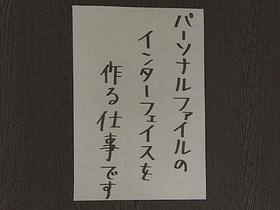 パーソナルファイルの
インターフェイスを
作る仕事です